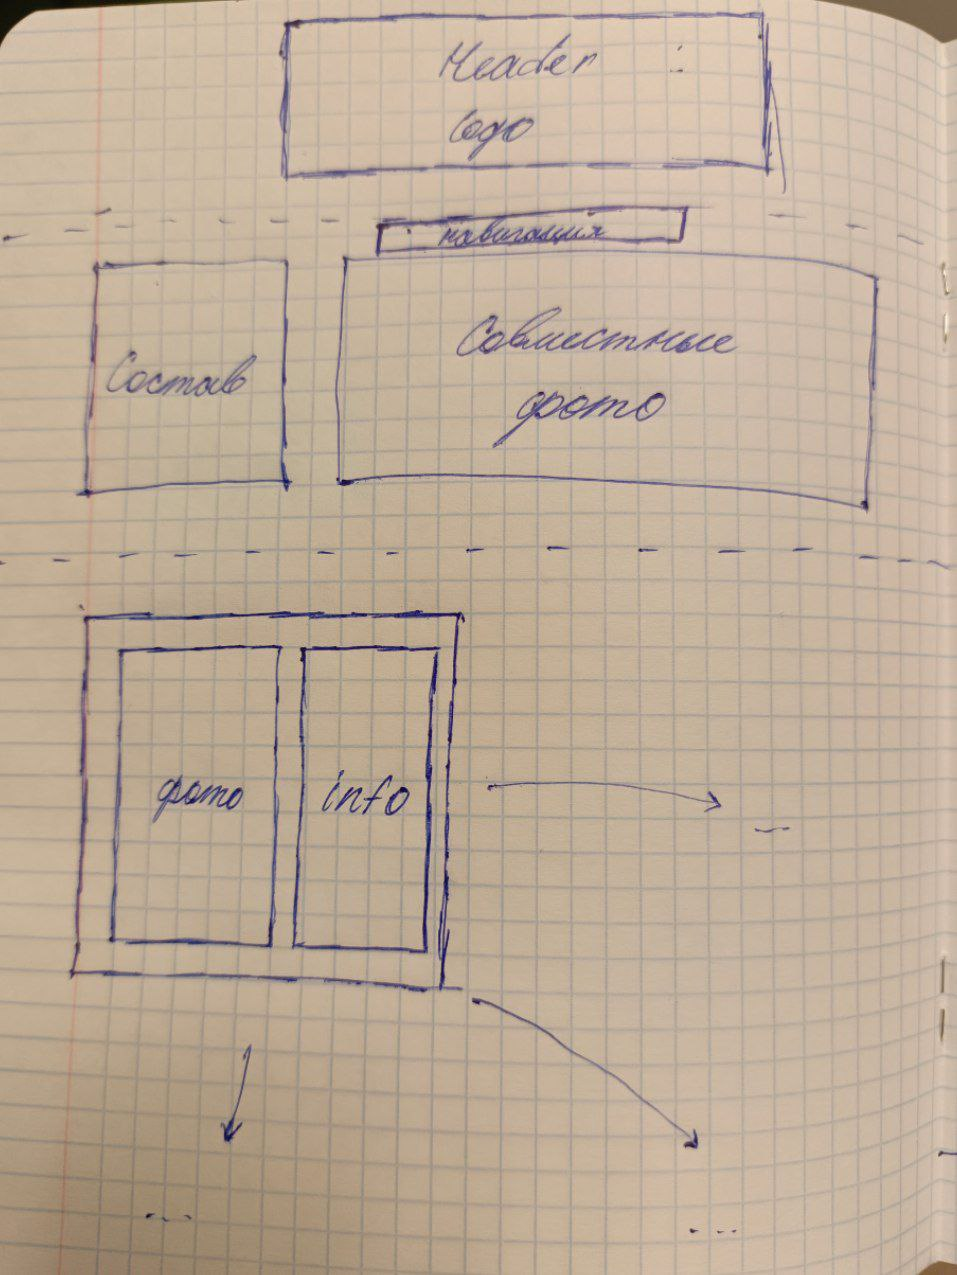 Header
Logo
навигация
Состав
Совместные
фото
фото
info